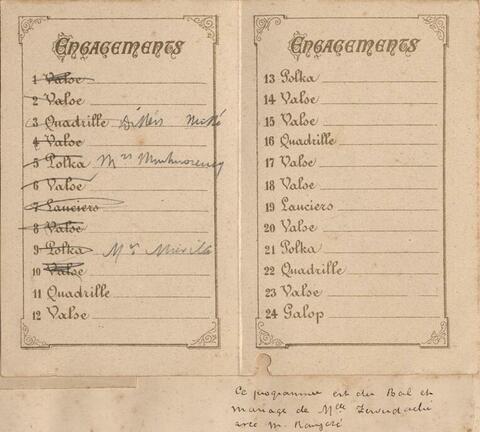 ENGAGEMENTS
1 Valse
2 Valse
3 Quadrille
4 Valse
5 Polka Mrs
6 Valse
7 Lanciers
8 Valse
9 Polka Mr
10 Valse
11 Quadrille
12 Valse
ENGAGEMENTS
13 Polka
14 Valse
15 Valse
16 Quadrille
17 Valse
18 Valse
19 Lanciers
20 Valse
21 Polka
22 Quadrille
23 Valse
24 Galop
Ce programme est du Bal et
mariage de Mlle
avec M.